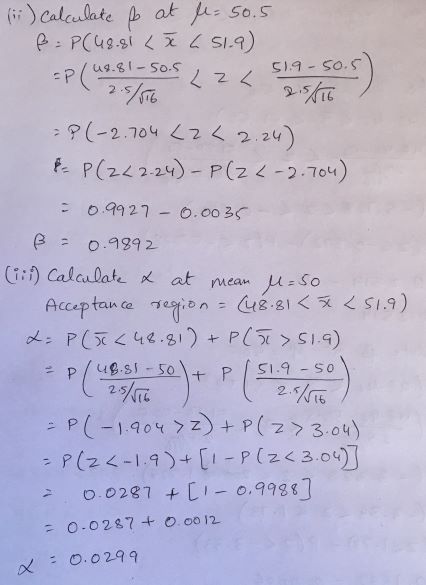 (ii) Calculate β at μ = 50.5
β = P(48.81 < x̄ < 51.9)
= P( (48.81 - 50.5)/(2.5/√16) < z < (51.9 - 50.5)/(2.5/√16) )
= P(-2.704 < z < 2.24)
β = P(z < 2.24) - P(z < -2.704)
= 0.9927 - 0.0035
β = 0.9892
(iii) Calculate α at mean μ = 50
Acceptance region = (48.81 < x̄ < 51.9)
α = P(x̄ < 48.81) + P(x̄ > 51.9)
= P( (48.81 - 50)/(2.5/√16) ) + P( (51.9 - 50)/(2.5/√16) )
= P(-1.904 > z) + P(z > 3.04)
= P(z < -1.9) + [1 - P(z < 3.04)]
= 0.0287 + [1 - 0.9988]
= 0.0287 + 0.0012
α = 0.0299